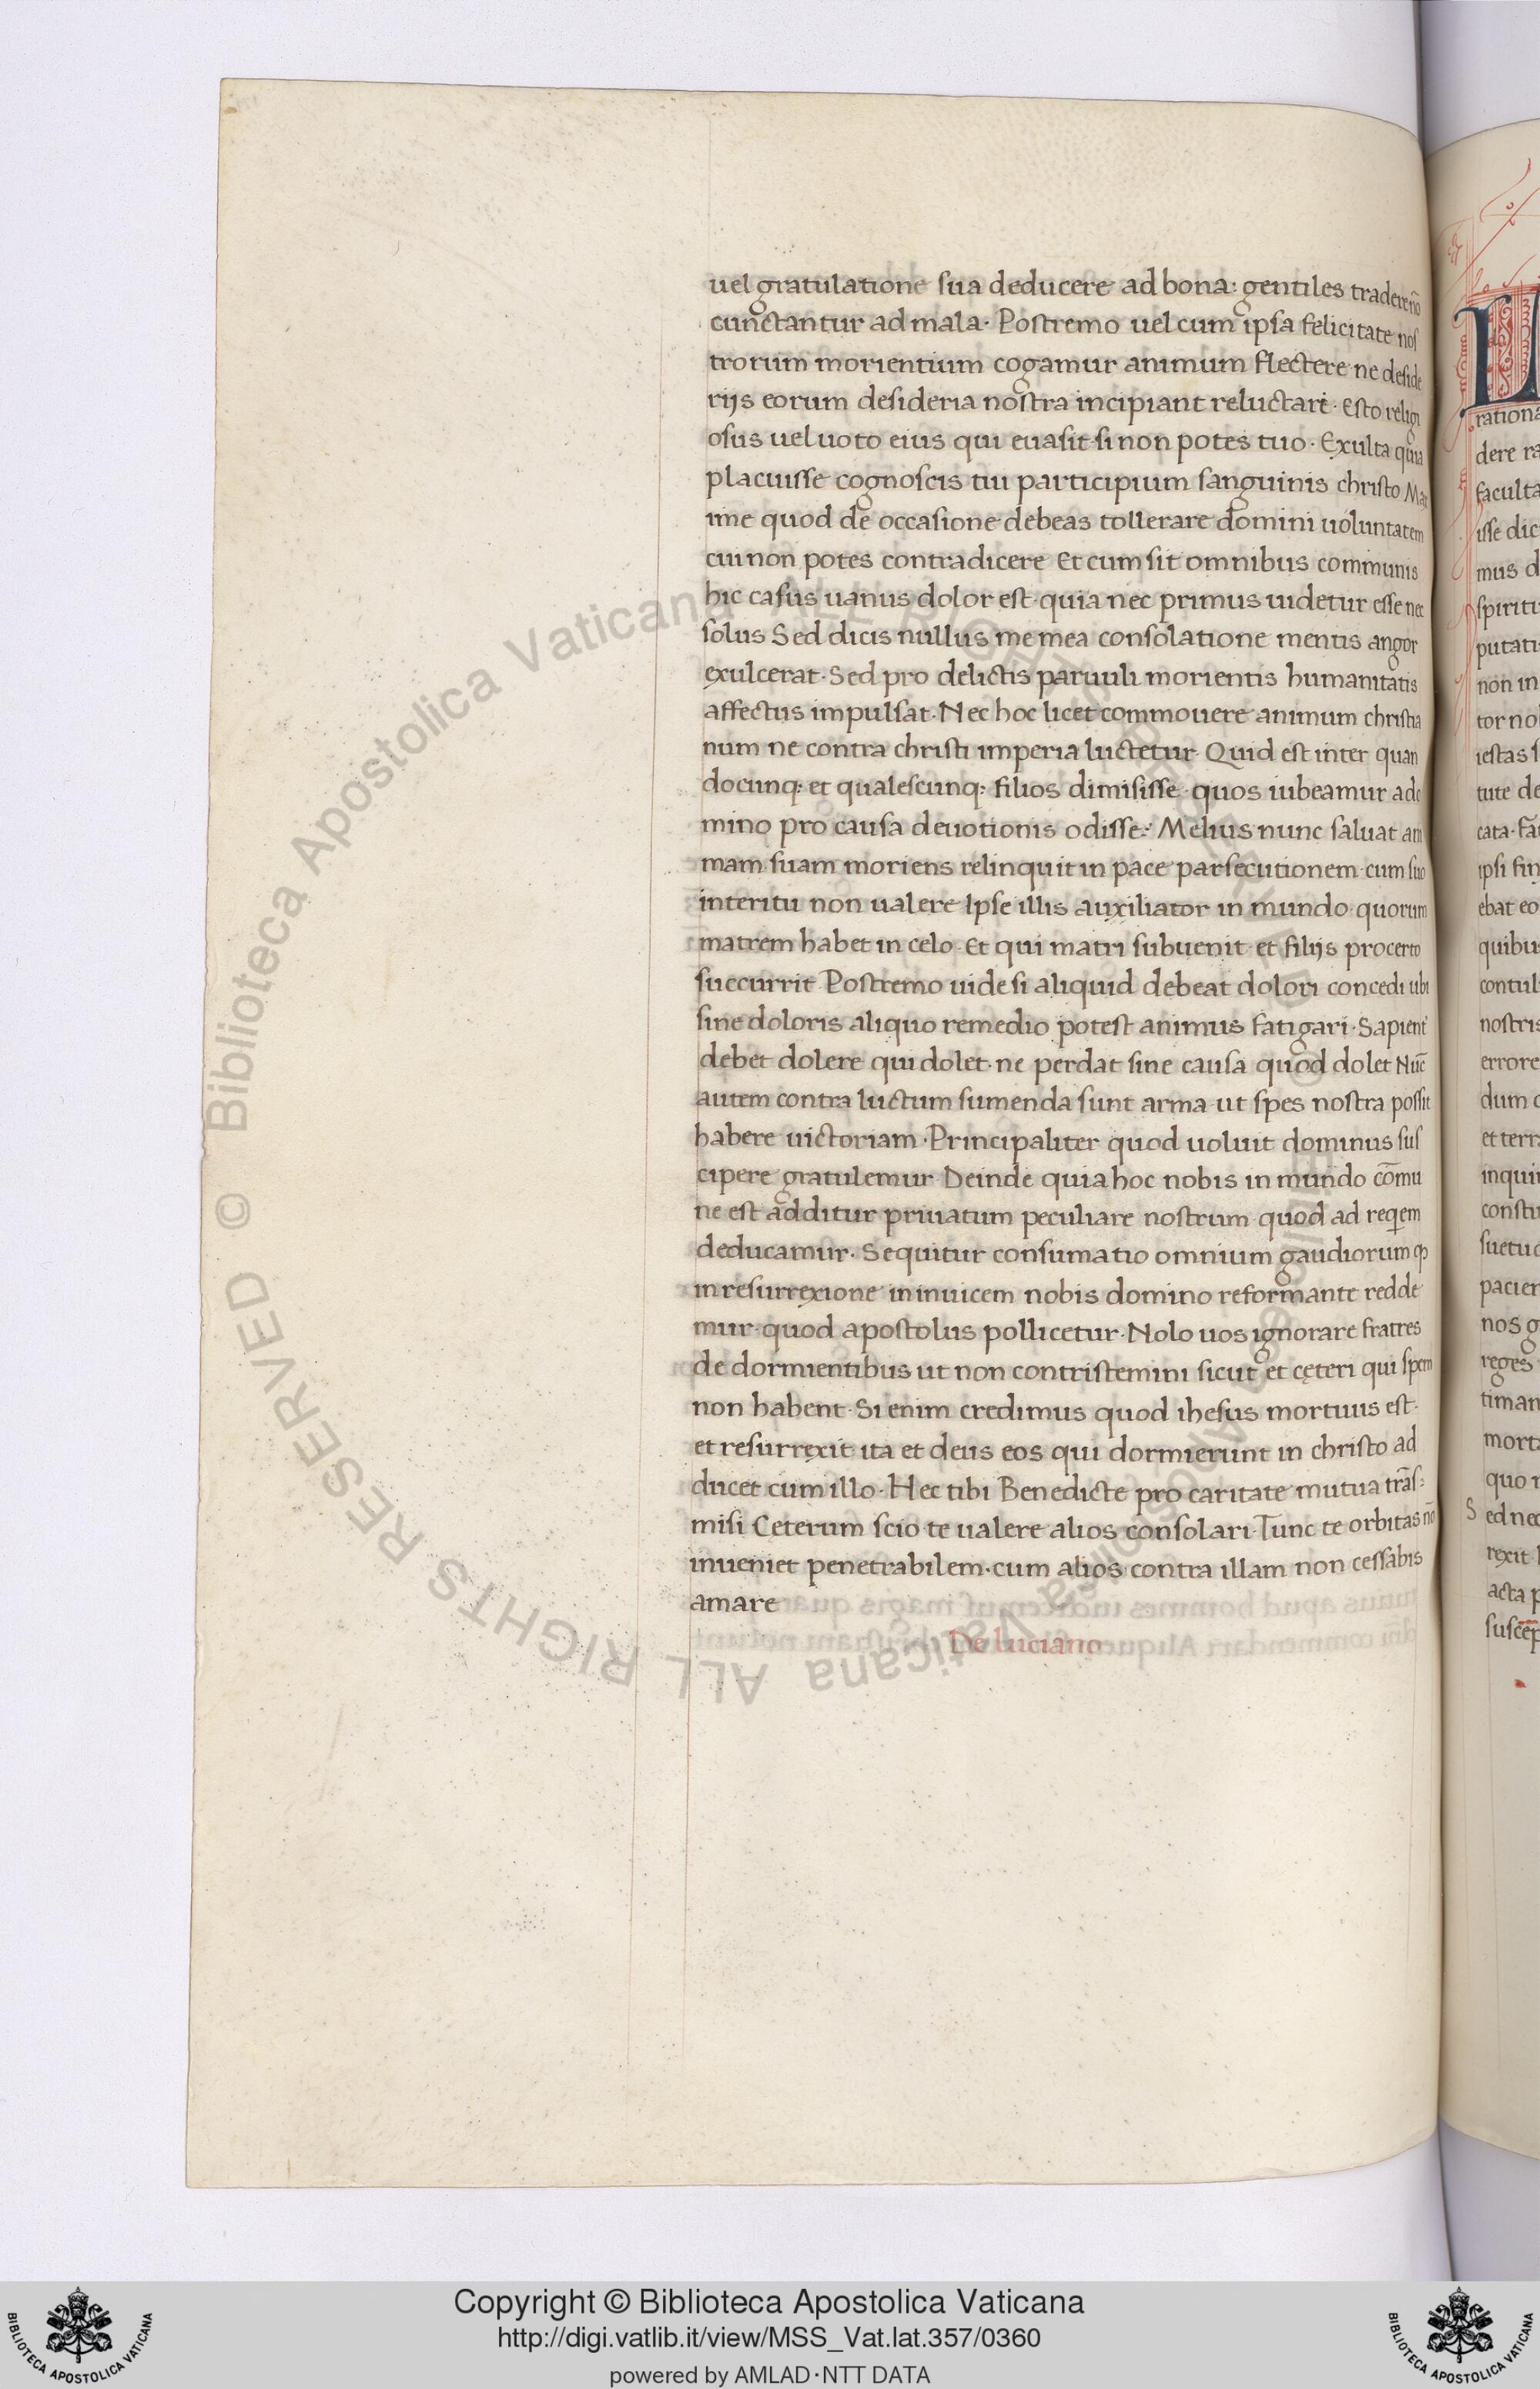 uel gratulatione sua deducere ad bona: gentiles tradere nō
cunctantur ad mala· Postremo uel cum ipsa felicitate nos
trorum morientium cogamur animum flectere ne deside
rijs eorum desideria nostra incipiant reluctari· Esto religi
osus uel uoto eius qui euasit· si non potes tuo· Exulta quia
placuisse cognoscis tui participium sanguinis christo
ime quod de occasione debeas tollerare domini uoluntatem
cui non potes contradicere Et cum sit omnibus communis
hic casus uanus dolor est· quia nec primus uidetur esse nec
solus Sed dicis nullus me mea consolatione mentis angor
exulcerat· Sed pro delictis paruuli morientis humanitatis
affectus impulsat· Nec hoc licet commouere animum christia
num ne contra christi imperia luctetur· Quid est inter quan
docunq: et qualescunq: filios dimisisse· quos iubeamur a do
mino pro causa deuotionis odisse: Melius nunc saluat ani
mam suam moriens relinquit in pace parsecutionem· cum suo
interitu non ualere Ipse illis auxiliator in mundo· quorum
matrem habet in celo· Et qui matri subuenit· et filijs pro certo
succurrit Postremo uide si aliquid debeat dolori concedi ubi
sine doloris aliquo remedio potest animus fatigari· Sapient'
debet dolere qui dolet· ne perdat sine causa quod dolet Nūc
autem contra luctum sumenda sunt arma· ut spes nostra possit
habere uictoriam· Principaliter quod uoluit dominus sus
cipere gratulemur· Deinde quia hoc nobis in mundo cōmu
ne est additur priuatum peculiare nostrum· quod ad reqem
deducamur· Sequitur consumatio omnium gaudiorum ꝙ
in resurrexione in inuicem nobis domino reformante redde
mur· quod apostolus pollicetur· Nolo uos ignorare fratres
de dormientibus ut non contristemini sicut et cęteri qui spem
non habent· Si enim credimus quod ihesus mortuus est·
et resurrexit ita et deus eos qui dormierunt in christo ad
ducet cum illo· Hec tibi Benedicte pro caritate mutua trās:
misi Ceterum scio te ualere alios consolari· Tunc te orbitas nō
inueniet penetrabilem· cum alios contra illam non cessabis
amare
De luciano
rationa
dere ra
faculta
isse dic
mus d
spiriti
putati
non in
tor nol
iestas s
tute de
cata· fa
ipsi fin
ebat eo
quibu
contul
nostris
errore
dum c
et terr
inqui
constu
suetud
pacien
nos g
reges
timan
morta
quo
S ed nec
rexit
acta p
suscep
© Biblioteca Apostolica Vaticana ALL RIGHTS RESERVED
Copyright © Biblioteca Apostolica Vaticana
http://digi.vatlib.it/view/MSS_Vat.lat.357/0360
powered by AMLAD·NTT DATA
BIBLIOTECA APOSTOLICA VATICANA
BIBLIOTECA APOSTOLICA VATICANA